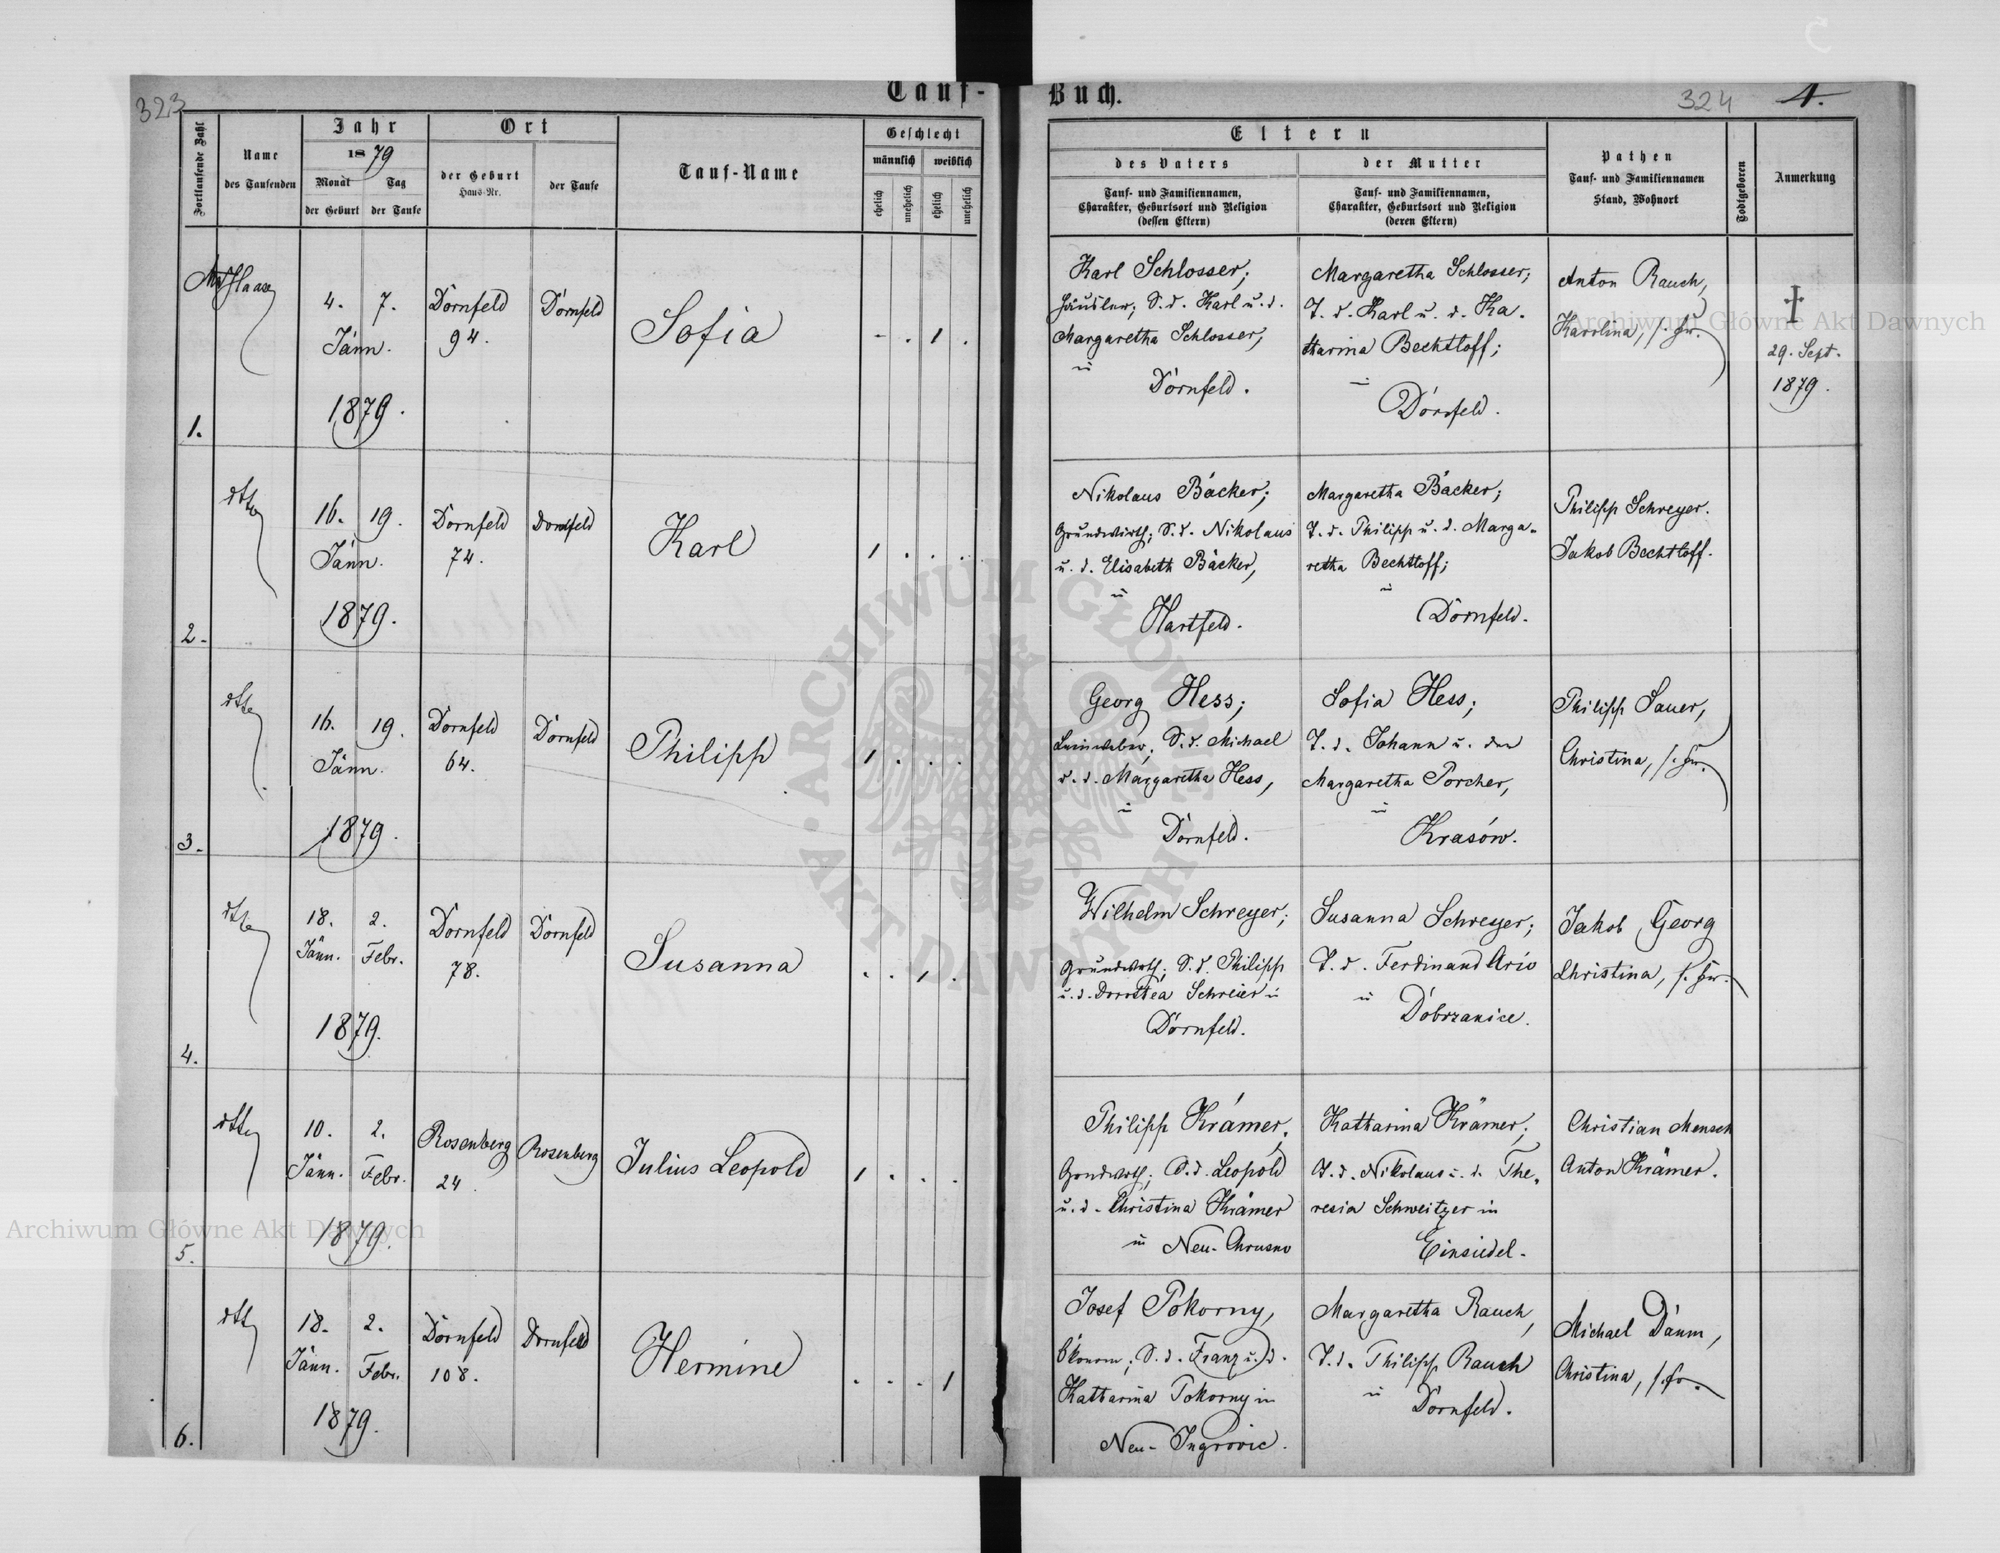 323
Tauf-
Buch.
324
1.
Fortlaufende Zahl
Name
des Taufenden
Jahr
1879
Monat
Tag
der Geburt
der Taufe
Ort
der Geburt
Haus-Nr.
der Taufe
Tauf-Name
Geschlecht
männlich
weiblich
ehelich
unehelich
ehelich
unehelich
Eltern
des Vaters
Tauf- und Familiennamen,
Charakter, Geburtsort und Religion
(dessen Eltern)
der Mutter
Tauf- und Familiennamen,
Charakter, Geburtsort und Religion
(deren Eltern)
Pathen
Tauf- und Familiennamen
Stand, Wohnort
Todtgeboren
Anmerkung
1.
Haase
4. 7.
Jänn.
1879.
Dornfeld
94.
Dornfeld
Sofia
- . 1 .
Karl Schlosser;
Häusler; S. d. Karl u. d.
Margaretha Schlosser,
in
Dornfeld.
Margaretha Schlosser;
T. d. Karl u. d. Ka-
tharina Bechtloff;
in
Dornfeld.
Anton Rauch,
Karolina, s. Fr.
†
29. Sept.
1879.
2.
dtto
16. 19.
Jänn.
1879.
Dornfeld
74.
Dornfeld
Karl
1 . . .
Nikolaus Bäcker;
Grundwirth; S. d. Nikolaus
u. d. Elisabeth Bäcker,
in
Hartfeld.
Margaretha Bäcker;
T. d. Philipp u. d. Marga-
retha Bechtloff;
in
Dornfeld.
Philipp Schreyer.
Jakob Bechtloff.
3.
dtto
16. 19.
Jänn.
1879.
Dornfeld
64.
Dornfeld
Philipp
1 . . .
Georg Hess;
Leinweber; S. d. Michael
u. d. Margaretha Hess,
in
Dornfeld.
Sofia Hess;
T. d. Johann u. der
Margaretha Porcher,
in
Krasów.
Philipp Sauer,
Christina, s. Fr.
4.
dtto
18. 2.
Jänn. Febr.
1879.
Dornfeld
78.
Dornfeld
Susanna
. . 1 .
Wilhelm Schreyer;
Grundwrth; S. d. Philipp
u. d. Dorothea Schreier in
Dornfeld.
Susanna Schreyer;
T. d. Ferdinand Ario
in
Dobrzanice.
Jakob Georg
Christina, s. Fr.
5.
dtto
10. 2.
Jänn. Febr.
1879.
Rosenberg
24.
Rosenberg
Julius Leopold
1 . . .
Philipp Krämer,
Grndwrth; S. d. Leopold
u. d. Christina Krämer
in Neu-Chrusno
Katharina Krämer;
T. d. Nikolaus u. d. The-
resia Schweitzer in
Einsiedel.
Christian Mensch
Anton Krämer.
6.
dtto
18. 2.
Jänn. Febr.
1879.
Dornfeld
108.
Dornfeld
Hermine
. . . 1
Josef Pokorny,
Ökonom; S. d. Franz u. d.
Katharina Pokorny in
Neu-
Margaretha Rauch,
T. d. Philipp Rauch
in
Dornfeld.
Michael Daum,
Christina, s. Fr.
Archiwum Główne Akt Dawnych
Archiwum Główne Akt Dawnych
ARCHIWUM GŁÓWNE AKT DAWNYCH